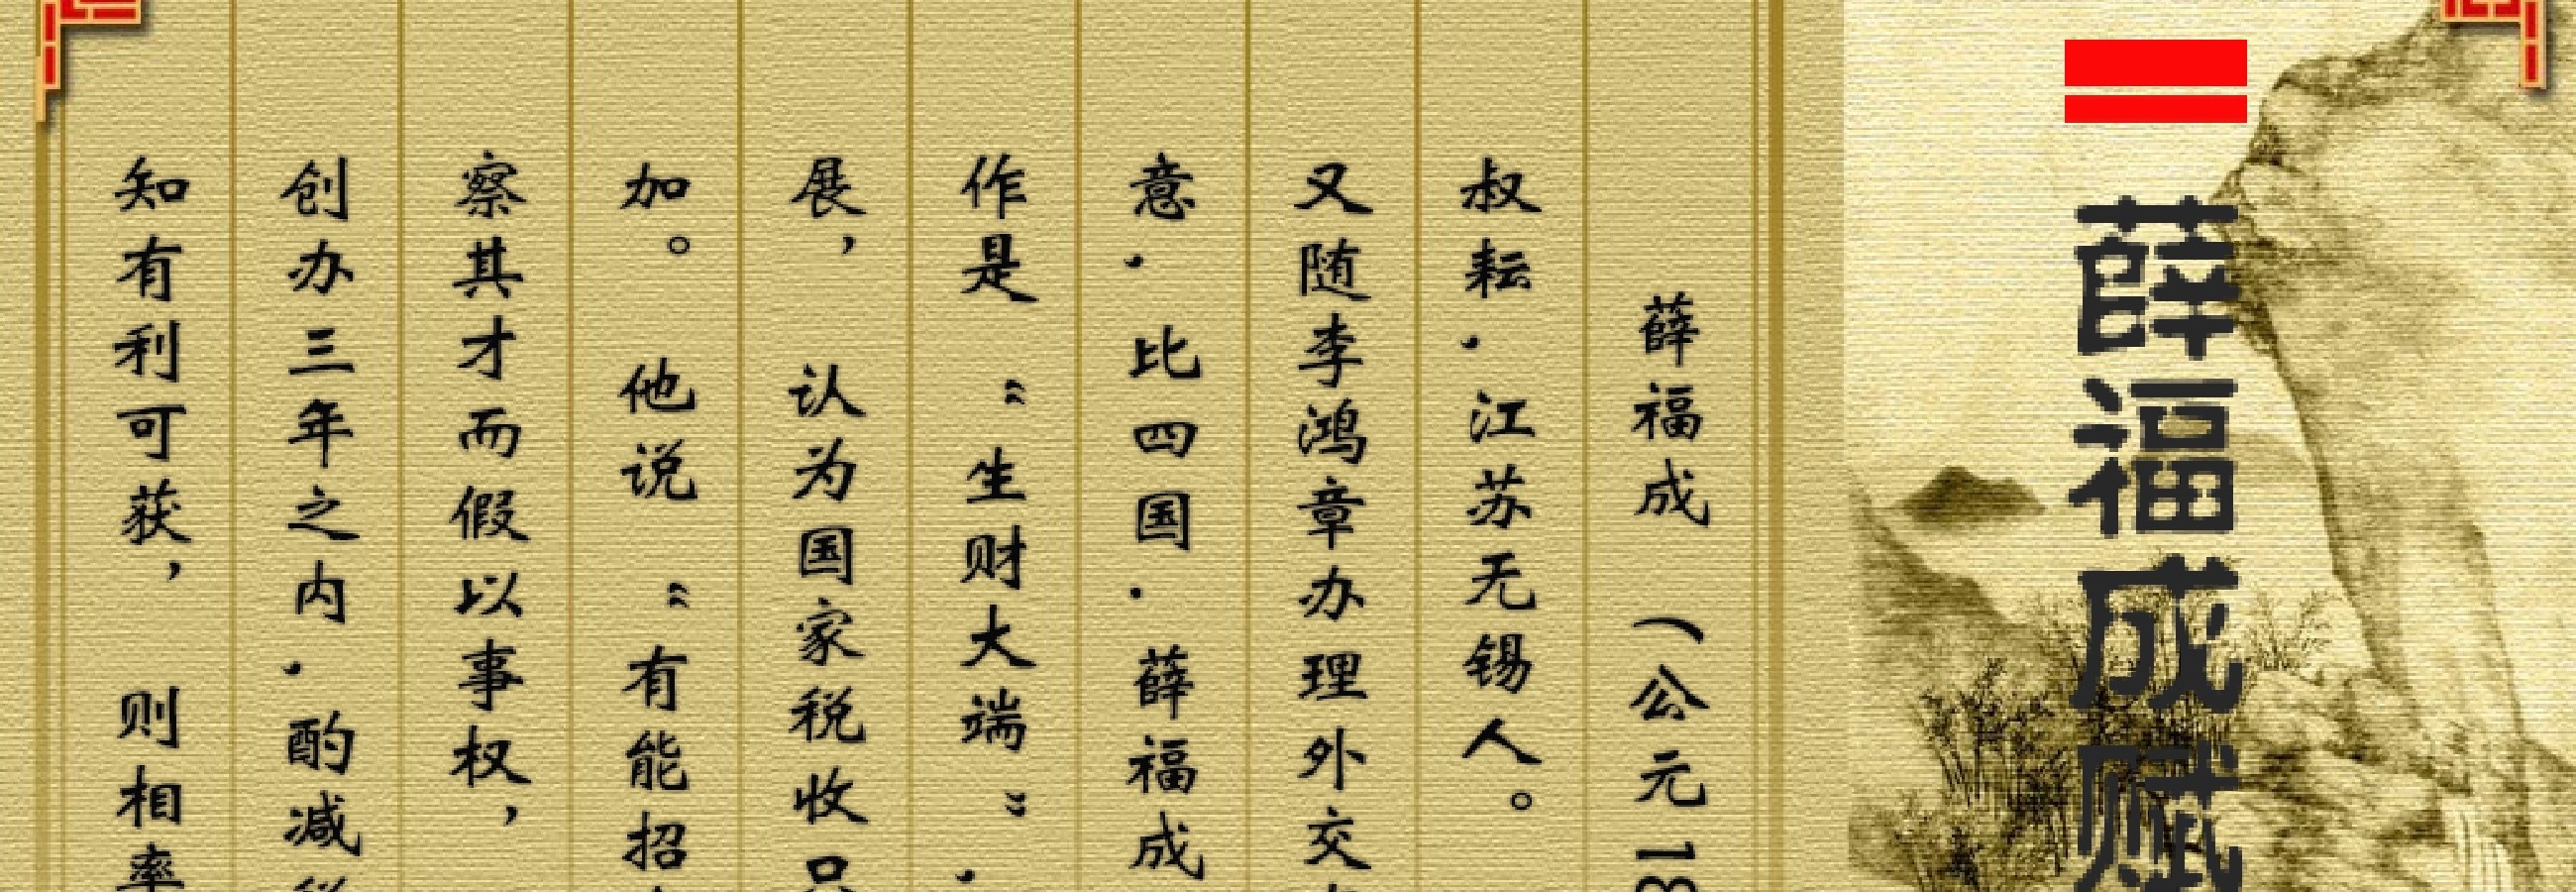 薛福成赋
薛福成（公元18
叔耘．江苏无锡人。
又随李鸿章办理外交
意．比四国．薛福成
作是“生财大端”．
展，认为国家税收只
加。他说“有能招
察其才而假以事权，
创办三年之内．酌减税
知有利可获，则相率